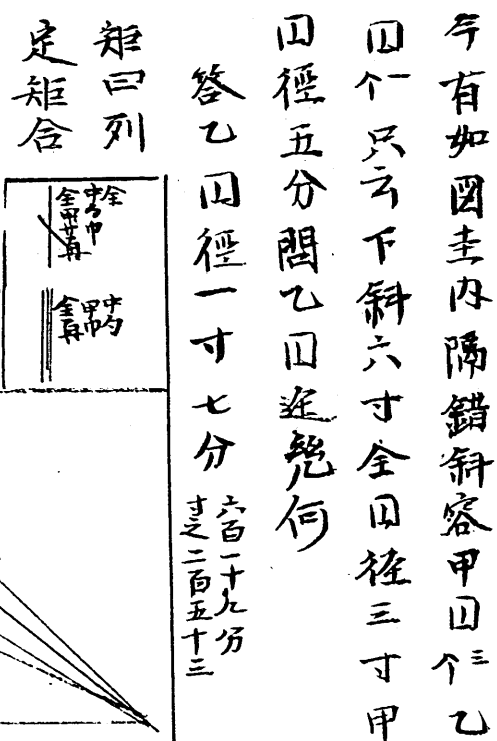 今有如図圭内隔錯斜容甲円三个乙
円一个只云下斜六寸全円径三寸甲
円徑五分問乙円径幾何
答乙円徑一寸七分
六百一十九分
寸之二百五十三
矩曰列
定矩合